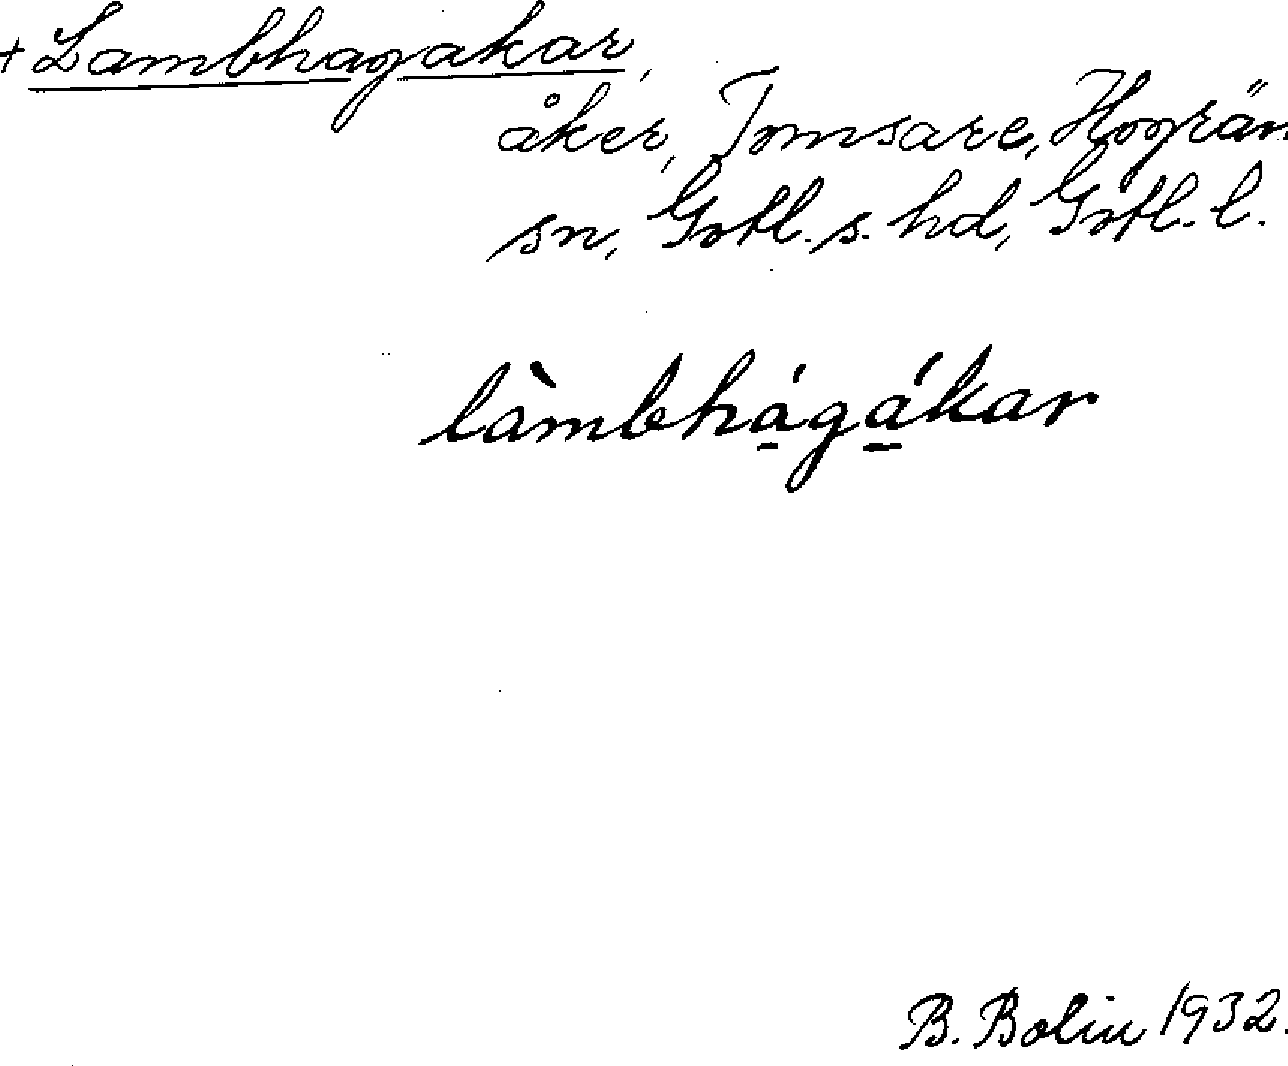 + Lambhagakar,
åker, Tomsare, Hogrän
sn, Gotl. s. hd, Gotl. l.
làmbhá̱gá̱kar
B. Bolin 1932.